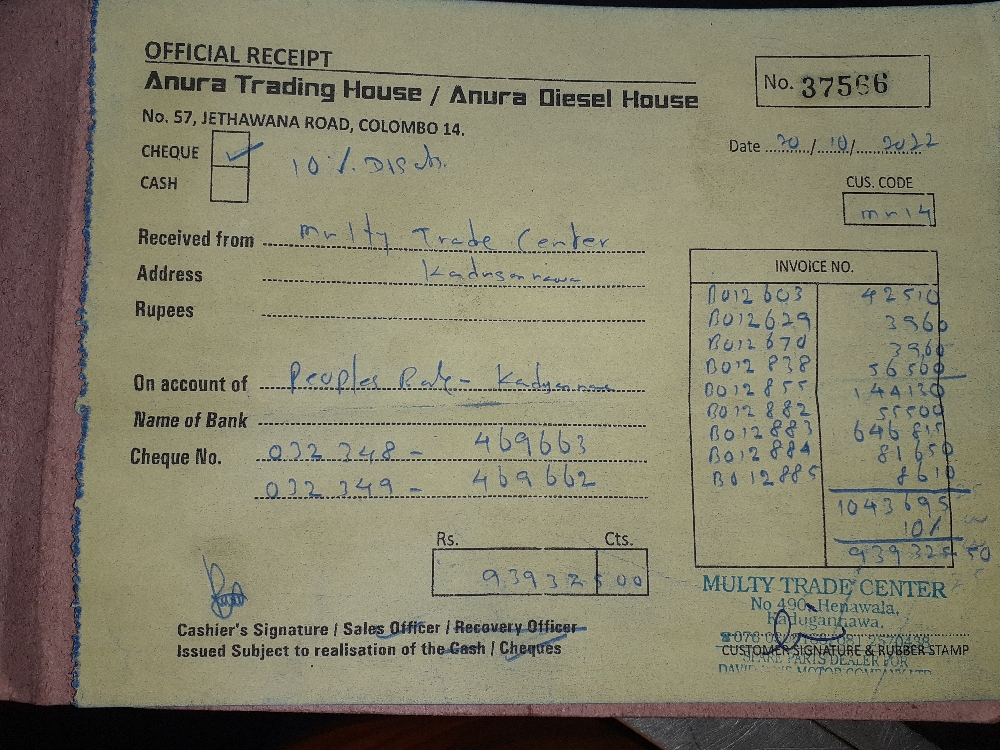 OFFICIAL RECEIPT
Anura Trading House / Anura Diesel House
No. 37566
No. 57, JETHAWANA ROAD, COLOMBO 14.
Date 20/10/2022
CHEQUE ✓ 10 %. Dis
CASH
CUS. CODE
mr14
Received from multy Trade Center
Address Kadugannawa
Rupees
INVOICE NO.
B012603 42510
B012629 3960
B012670 3960
B012838 56500
B012855 144130
B012882 55500
B012883 646815
B012884 81650
B012885 8610
1043695
10%
939325 50
On account of Peoples Bank - Kadugannawa
Name of Bank
Cheque No. 032 348 - 469663
032 349 - 469662
Rs. Cts.
939325 00
Cashier's Signature / Sales Officer / Recovery Officer
Issued Subject to realisation of the Cash / Cheques
MULTY TRADE CENTER
No 490, Henawala,
Kadugannawa.
CUSTOMER SIGNATURE & RUBBER STAMP
SPARE PARTS DEALER FOR
MOTOR COMPANY LTD